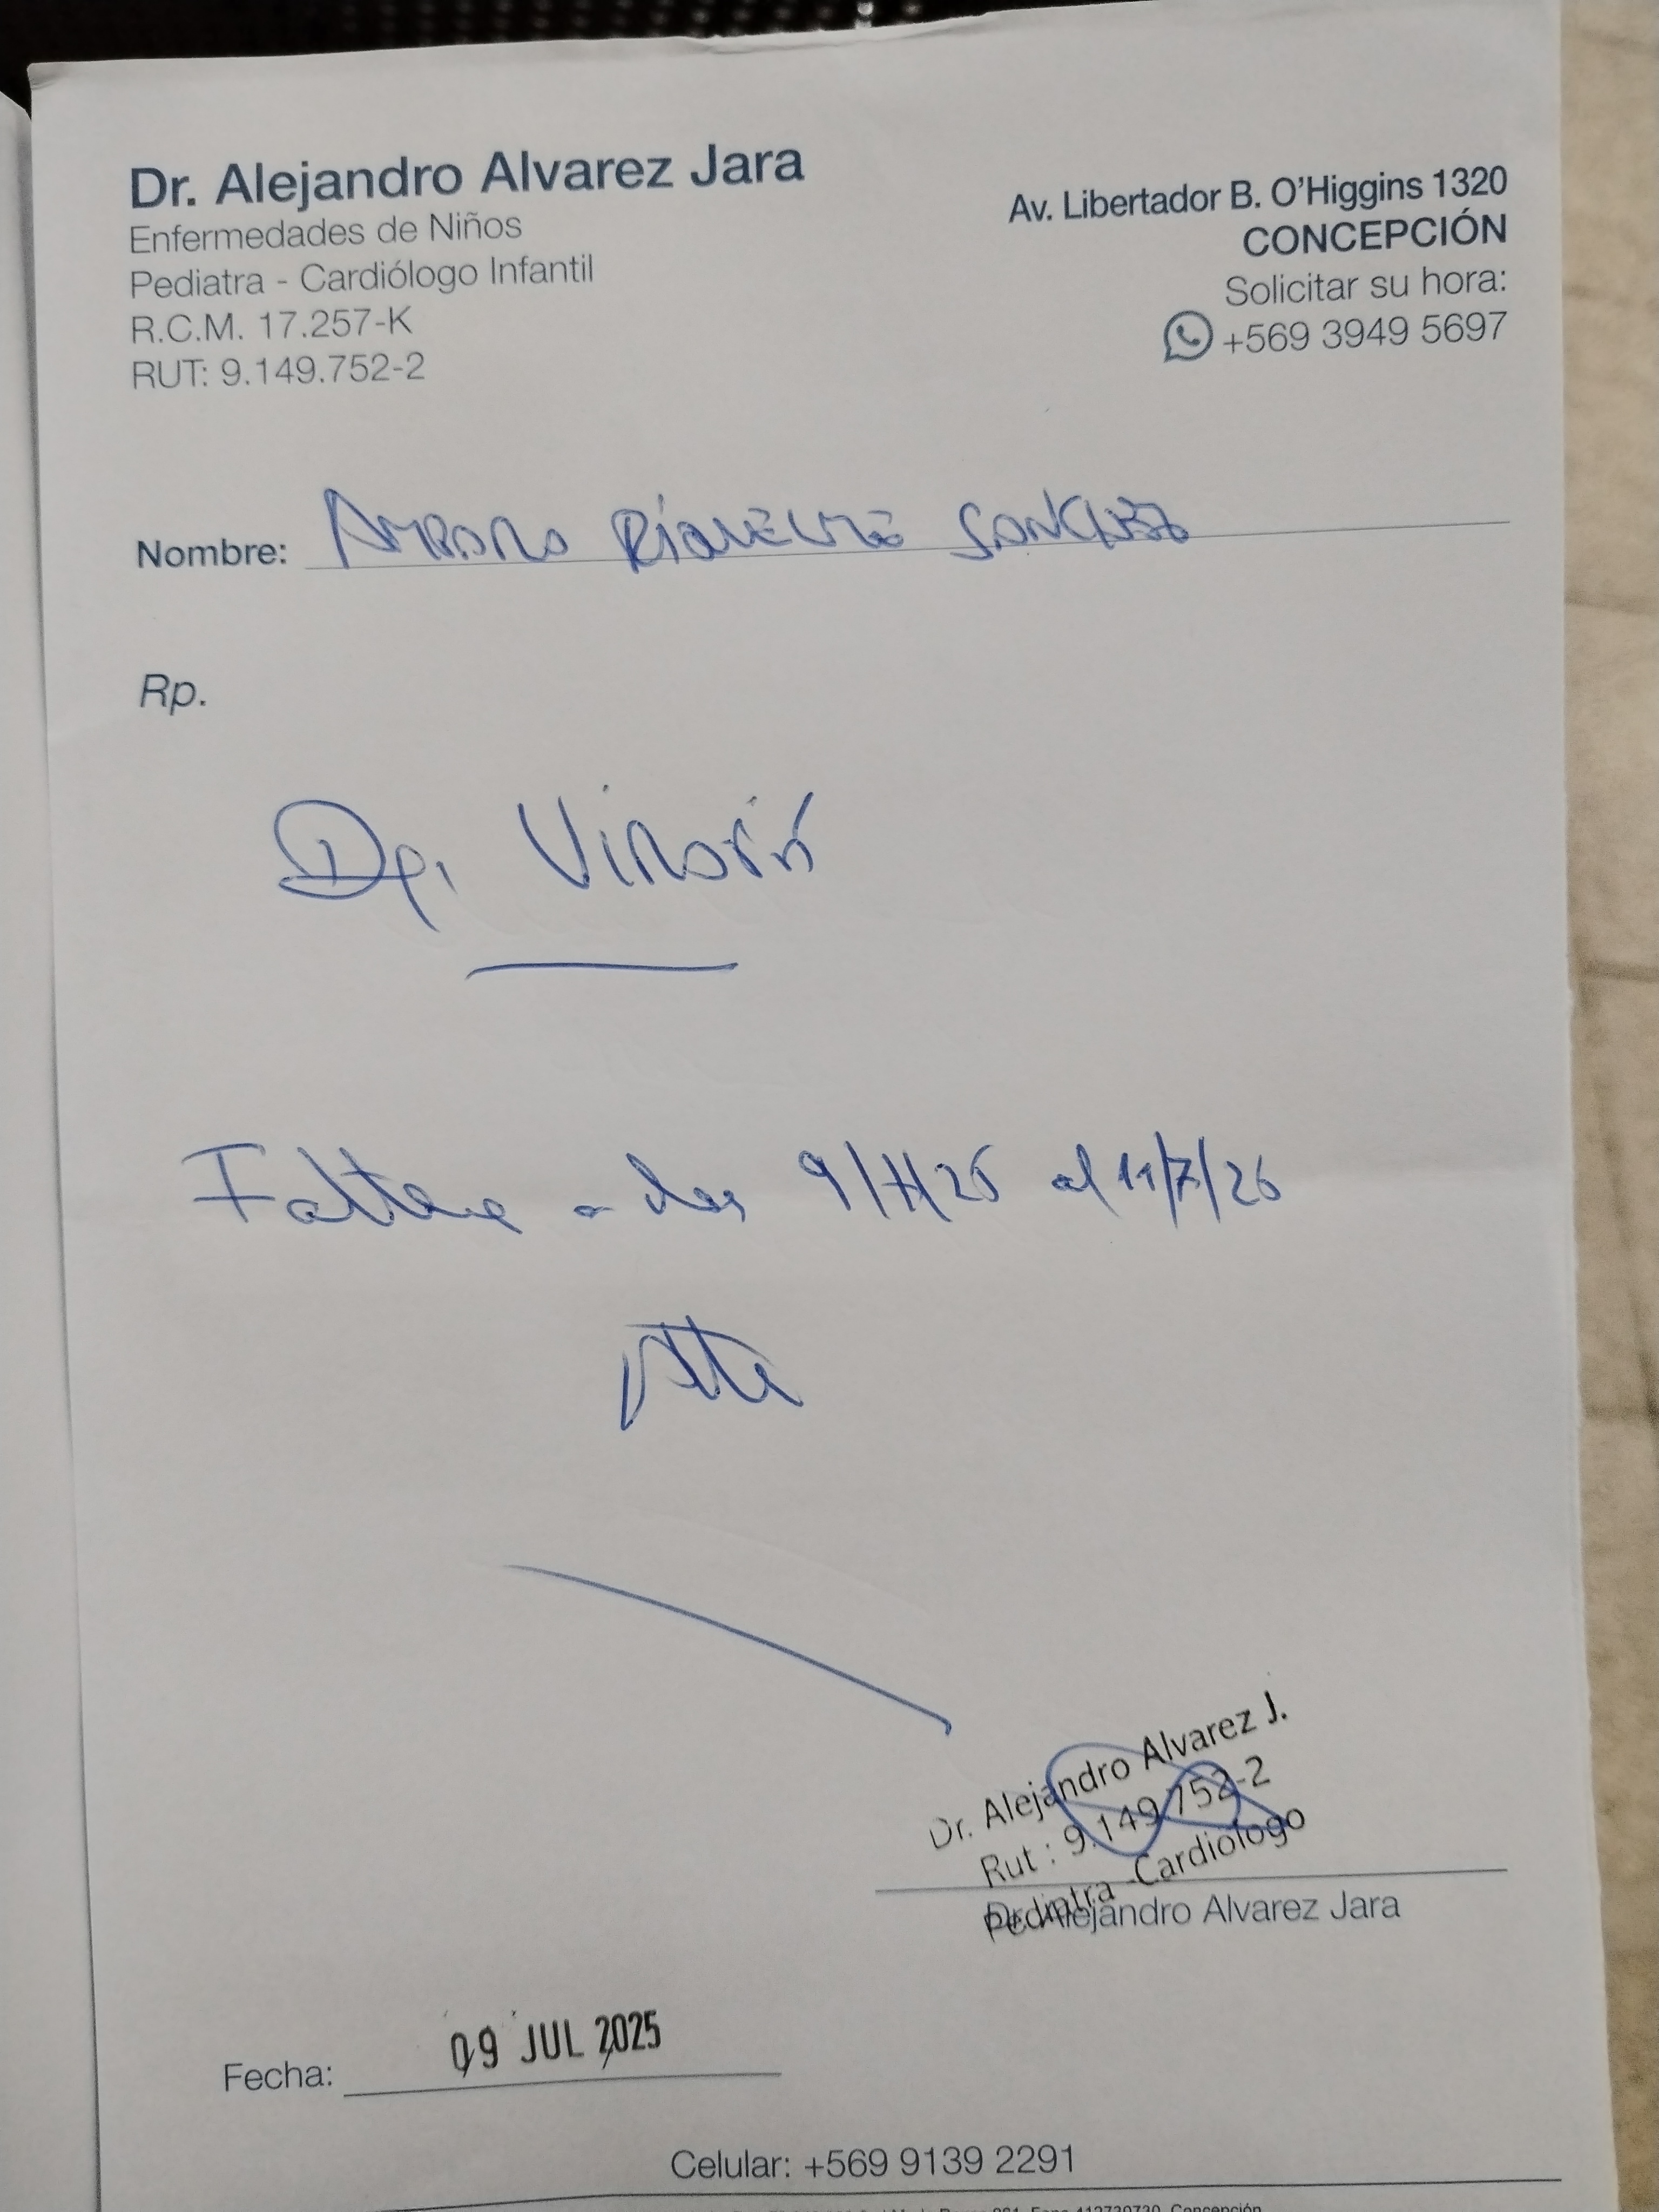 Dr. Alejandro Alvarez Jara
Enfermedades de Niños
Pediatra - Cardiólogo Infantil
R.C.M. 17.257-K
RUT: 9.149.752-2
Av. Libertador B. O'Higgins 1320
CONCEPCIÓN
Solicitar su hora:
+569 3949 5697
Nombre: Amparo Riquelme Sanchez
Rp.
Dg.
a 9/7/25 al 11/7/25
Dr. Alejandro Alvarez J.
Rut : 9.149.752-2
Pediatra - Cardiologo
Dr. Alejandro Alvarez Jara
Fecha: 09 JUL 2025
Celular: +569 9139 2291
Concepción